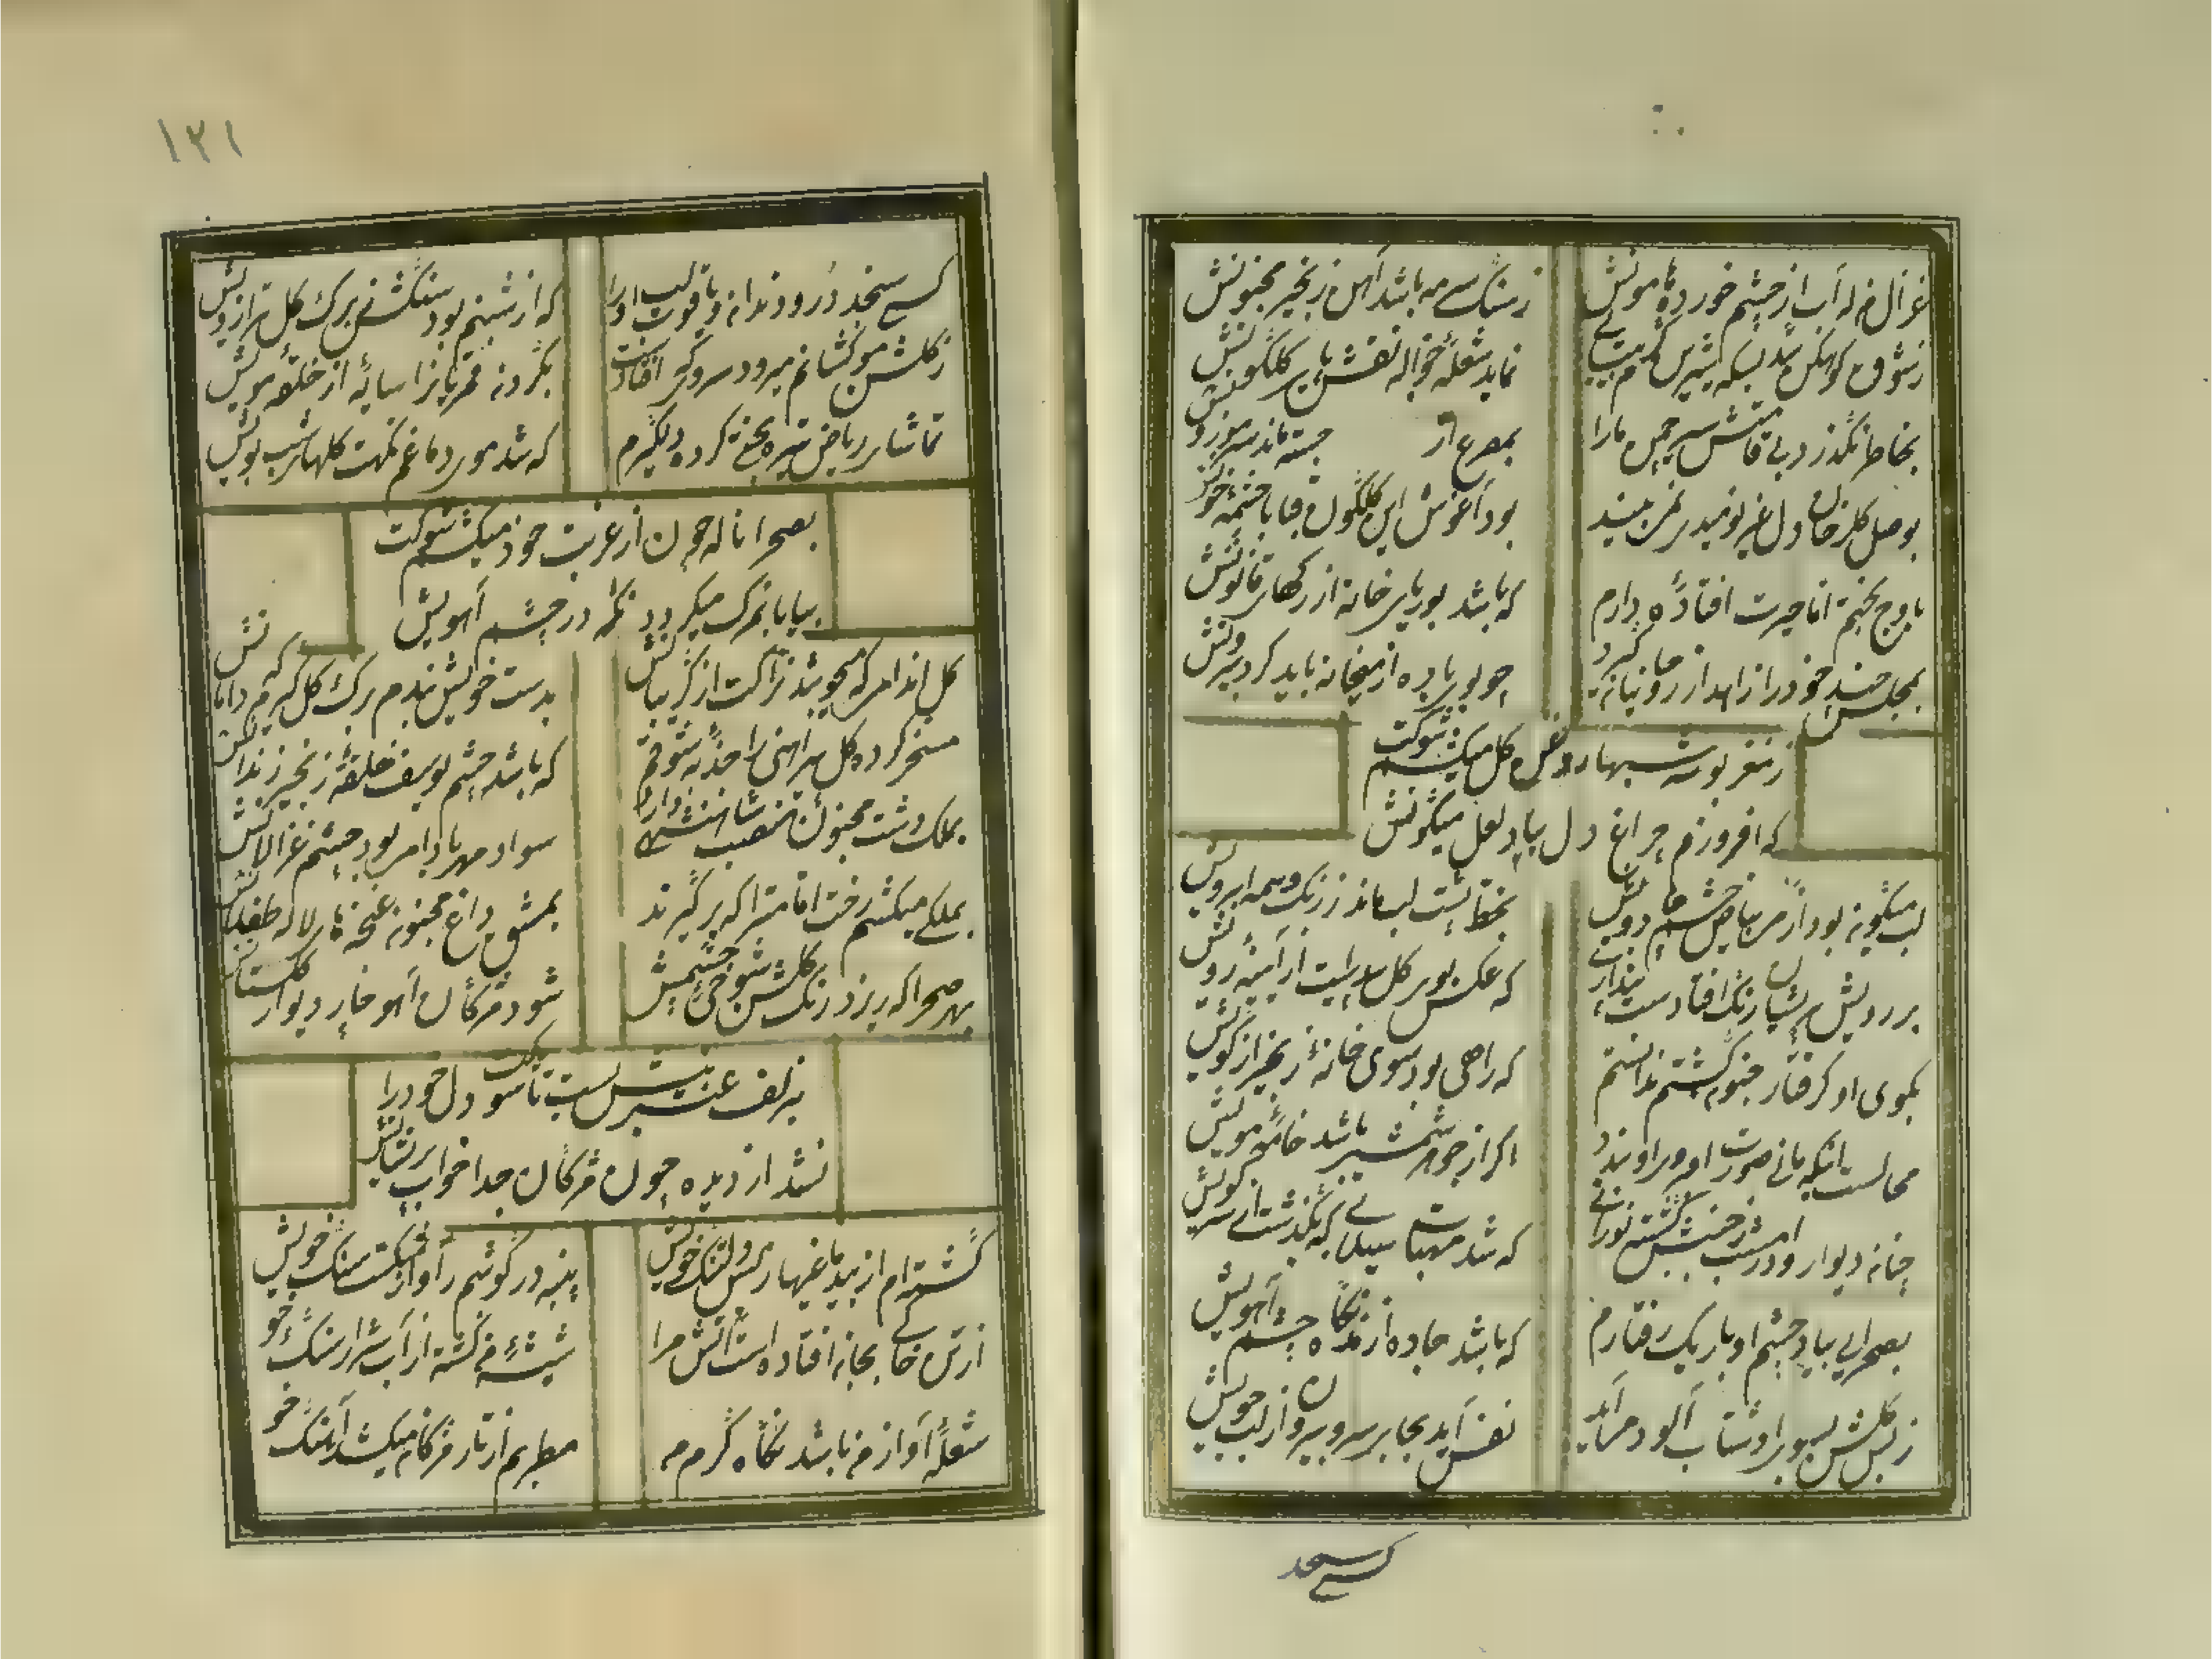 غزالی که آب از چشم خود ده هامونش
ز سنگ سرمه باشد آهن زنجیر مجنونش
ز شوق کوهکن شد بسکه شیرین گرم بیتابی
نماید شعله جواله نقش پای گلگونش
بخاطر نگذرد بی قامتش سیر چمن ما را
بمصرع از جسته ماند سرو موزونش
بوصل گلرخان دل غیر نومیدی نمی بیند
بود آغوش این گلگون قبا با چشمه خونش
باوج بختم اما حیرت افتاده دارم
که باشد بوریای خانه از رگهای قانونش
بمجلس چند خود را زاهد از روحانیان گیرد
چو بوی باده از میخانه باید کرد بیرونش
ز مغز بوته شبها روغن گل میکشم شوکت
که افروزم چراغ دل بیاد لعل میگونش
لب میگونه بود از می بیاض چشم جادویش
بخط پشت لب ماند ز رنگ وسمه ابرویش
بر رویش پریشان رنگ افتادست پنداری
که عکس بوی گل پیداست از آیینه رویش
بکوی او گرفتار جنون گشتم ندانستم
که راهی بود سوی خانه زنجیر از کویش
محالست اینکه مانی صورت ابروی او بندد
اگر از جوهر شمشیر باشد خامه مویش
چنانه دیوار و در امشب ز حسنش گشته نورانی
که شد مهتاب سیلابی که بگذشت از سر کویش
بصحرایی بیاد چشم او باریک رفتارم
که باشد جاده از مد نگاه چشم آهویش
ز بس گلشن ببوی او شتاب آلود می آید
نفس آید بجای سرو بیرون از لب جویش
کسی سنجد
۱۲۱
کسی سنجد در و دندان و یاقوت لب او را
که از شبنم بود سنگش ز برگ گل ترازویش
ز گلشن موکشانم میبرد سروی که افتادست
بگردن قمریان را سایه از حلقه مویش
تماشای ریاض تیره بختی کرده دلگیرم
که شد موی دماغم نکهت گلهای شب بویش
بصحرا ناله چون از غربت خود میکشم شوکت
بیابانمرگ میگردد نگه در چشم آهویش
گل اندامی که میجوشد نزاکت از گریبانش
بدست خویش بندم برگ گل گر گیرم دامانش
مسخر کرده گل پیراهنی را جذبه شوقم
که باشد چشم یوسف حلقه زنجیر زندانش
بملک دشت مجنون منصب شاهنشهی دارم
سواد مهر بادامی بود چشم غزالانش
بملکی میکشم رخت اقامت را که پر گیرند
بمشق داغ مجنون غنچه های لاله طفلانش
بهر صحرا که ریزد رنگ گلشن شوخی چشمش
شود مژگان آهو خار دیوار گلستانش
بزلف عنبرینش بست تا شوکت دل خود را
نشد از دیده چون مژگان جدا خواب پریشانش
گشته ام از بیدماغیهای کس دلتنگ خویش
پنبه در گوشم ز آواز شکست سنگ خویش
از تن خاکی بجان افتاده است آتش مرا
شیشه من گشته از آب شرار سنگ خو
شعله آواز من باشد نگاه گرم من
مطربم از تار مژگانم میکشد آهنگ خو